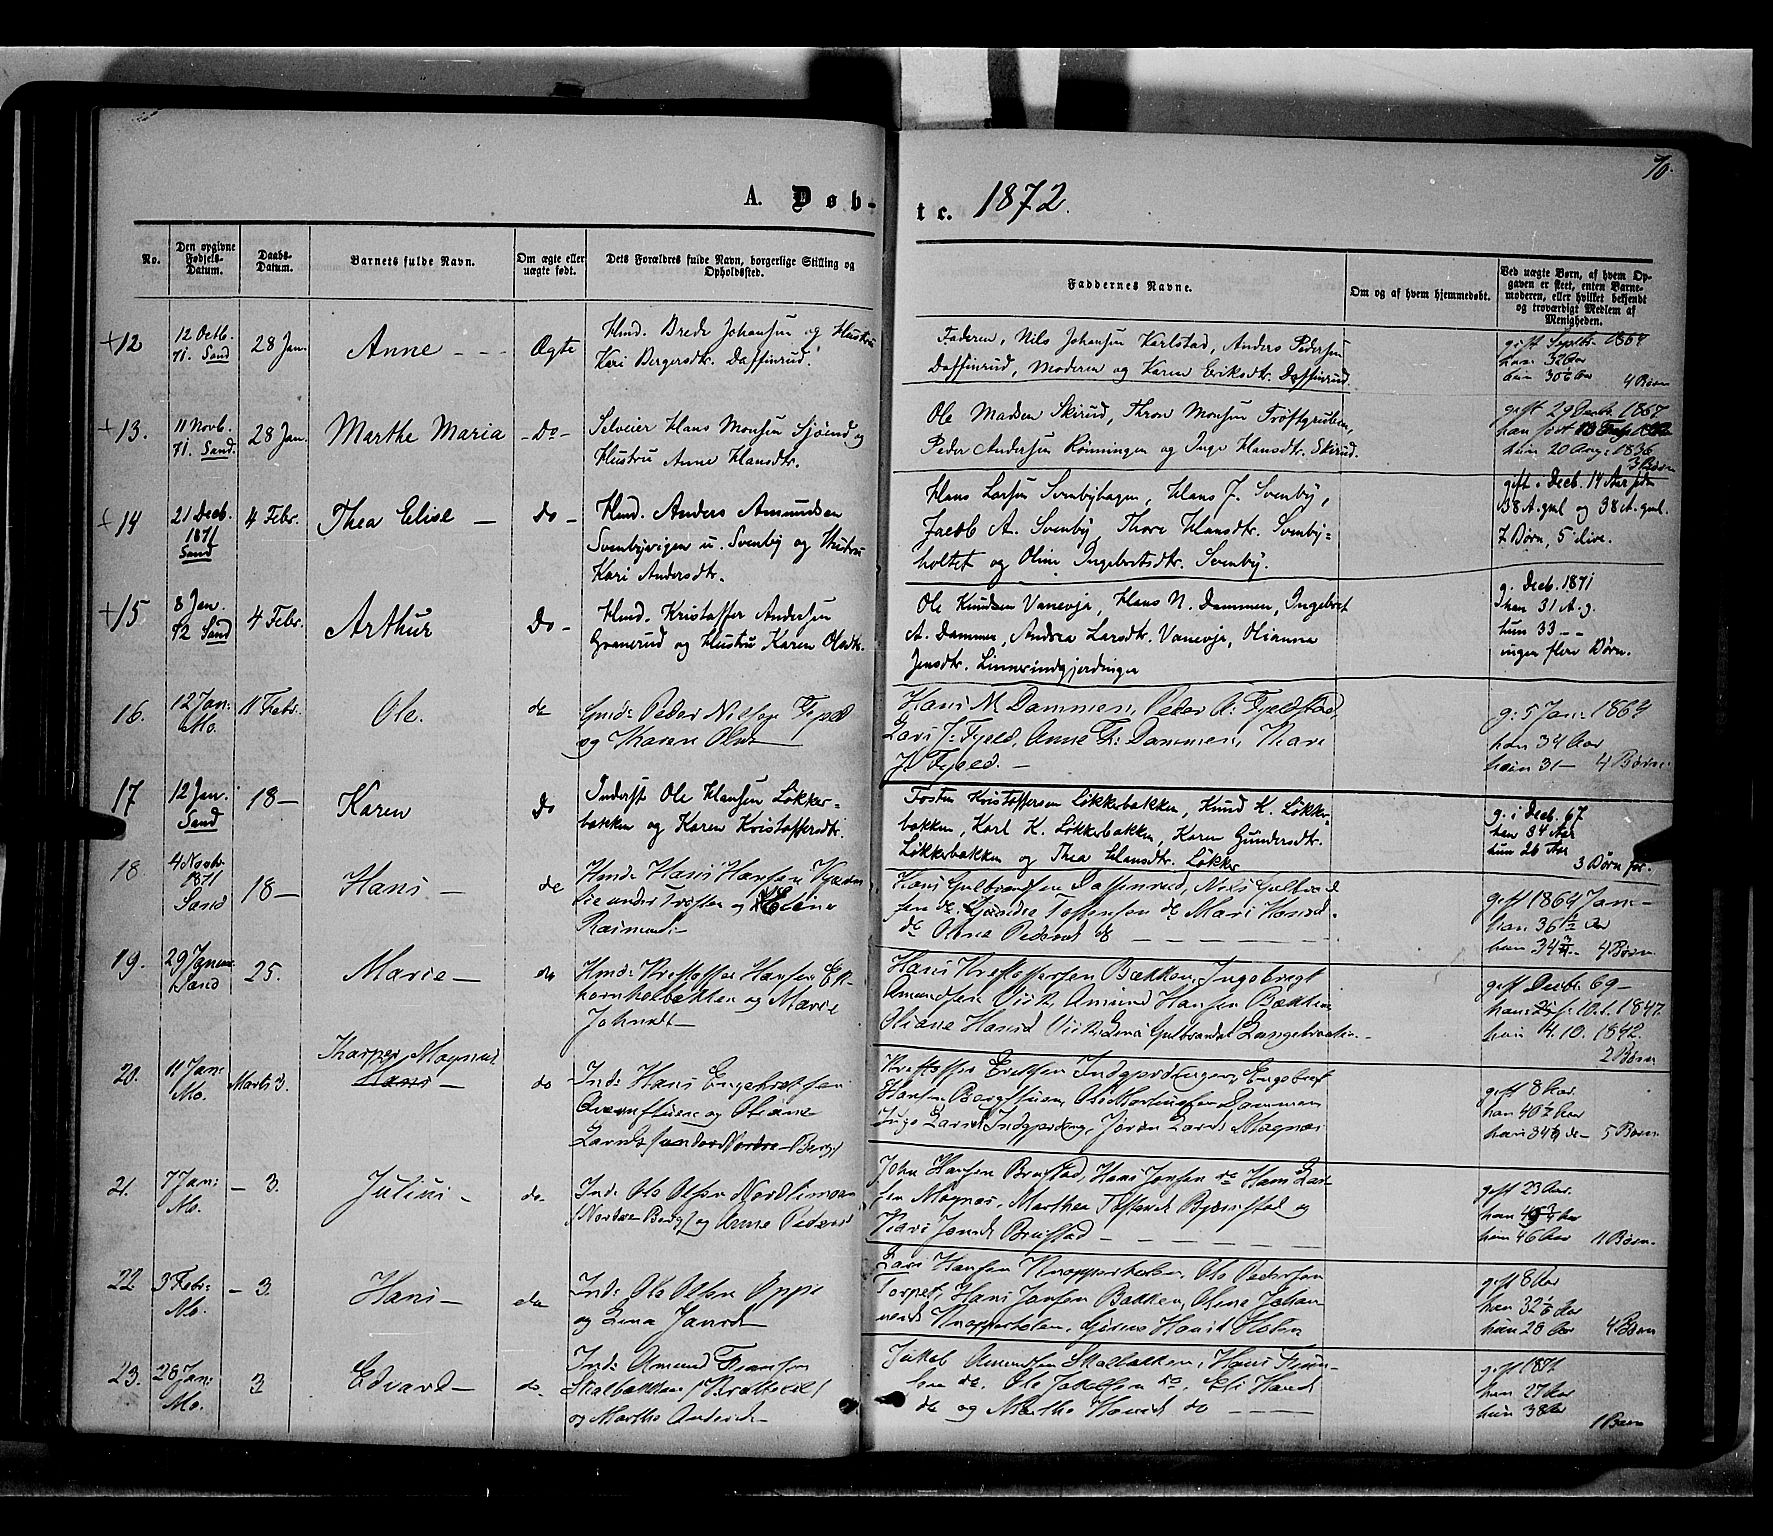 70.
A. Døb-
te. 1872.
No.
Den opgivne Fødsels-Datum.
Daabs-Datum.
Barnets fulde Navn.
Om ægte eller uægte født.
Dets Forældres fulde Navn, borgerlige Stilling og Opholdssted.
Faddernes Navne.
Om og af hvem hjemmedøbt.
Ved uægte Børn, af hvem Op-
gaven er skeet, enten Barne-
moderen, eller hvilket bekjendt
og troværdigt Medlem af
Menigheden.
+12 12 Octb. 71. Sand 28 Jan. Anne - - - Ægte
Hmd. Brede Johansen og Hustru
Kari Bergersdtr. Daffinrud.
Faderen, Nils Johansen Karlstad, Anders Pedersen
Daffinrud, Moderen og Karen Eriksdtr. Daffinrud
gift Septbr. 1864
han 32 Aar
hun 30 Aar
4 Børn
+13. 11 Novb. 71. Sand. 28 Jan. Marthe Maria - Do -
Selveier Hans Monsen Sjømd og
Hustru Anne Hansdtr.
Ole Madsen Skirud, Thron Monsen
Peder Andersen Rønningen og Inge Hansdtr. Skirud.
gift 29 1867
han født 13
hun 20 Aug. 1836
3 Børn
+14 21 Decb. 1871 Sand 4 Febr. Thea Elise - Do -
Hmd. Anders Amundsen
Svenbyvigen u. Svenby og Hustru
Kari Andersdtr.
Hans Larsen Svenbyhagen, Hans J. Svenby,
Jacob A. Svenby Thore Hansdtr. Svenby-
holtet og Oline Ingebretsdtr. Svenby.
gift i Decb. 14 Aar sdn
38 A. gml og 38 A. gml.
7 Børn, 5 live.
+15 8 Jan. 72 Sand 4 Febr. Arthur Do -
Hmd. Kristoffer Andersen
Granerud og Hustru Karen Olsdtr.
Ole Knudsen Vanevje, Hans N. Dammen, Ingebret
A. Dammen, Andrea Larsdtr. Vanevje, Olianna
Jensdtr. Linnerudgjerdingen
g. Decb. 1871
han 31 A. g.
hun 33 - -
ingen flere Børn.
16. 12 Jan: Mo. 11 Febr. Ole. do
Gmd: Peder Nilsen Fjeld
og Karen Olsd
Hans N. Dammen, Peder A. Fjeldstad,
Lars J. Fjeld, Anne Dammen, Kari
J. Fjeld. -
g: 5 Jan: 1864
han 34 Aar
hun 31 - 4 Børn.
17 12 Jan. Sand 18 - Karen Do
Inderst Ole Hansen Løkke-
bakken og Karen Kristoffersdtr.
Tosten Kristoffersen Løkkebakken, Knud K. Løkke-
bakken, Karl K. Løkkebakken, Karen Gundersdtr.
Løkkebakken og Thea Hansdtr. Løkke
g. i Decb. 67
han 34 Aar
hun 26 Aar
3 Børn før.
18. 4 Novbr 1871 Sand 18 - Hans - do
Hmd: Hans Hansen
under Trøften og Helene
Rasmusd:
Hans Gulbrandsen Daffinrud, Nils Gulbrand-
sen do. Tostensen do Mari Hansd.
do Olina Pedersd do - - - - -
gift 1864 Jan: -
han 36 Aar
hun 34 4 Børn
19. 29 Januar Sand 25. Marie - do
Hmd: Kristoffer Hansen
og Marie
Johnsdt -
Hans Kristoffersen Bakken, Ingebregt
Amundsen Amund Hansen Bakken
Oliane Hansd Lena Gulbrandsd
gift Decbr 69 -
han 10.1.1847.
hun 4.10.1842.
2 Børn
20. 11 Jan: Mo. Marts 3. Kasper Magnus Hans - do
Ind: Hans Engebretsen
og Oliane
Larsdt Nordre Berg
Kristoffer Eriksen Indgjerdingen, Engebret
Hansen Bergstuen, Ole Martinsen Dammen
Inge Larsd Indgjerding, Jøran Larsd Magnæs
gift 8 Aar
han 40 ½ Aar
hun 34 do - 5 Børn.
21. 7 Jan: Mo. - 3. Julius - do
Ind: Ole Olsen Nordlimoen
(Nordre Berg) og Anne Pedersd
John Hansen Brustad, Hans Jensen do Hans Lar-
sen Magnæs, Marthea Tostensd Bjørnstad og
Kari Jensd Brustad - - - - -
gift 23 Aar.
han Aar
hun 46 Aar 11 Børn.
22 3 Febr: Mo. - 3. Hans - do
Ind: Ole Olsen Oppi
og Lena Jansd
Lars Hansen Knapperholen, Ole Pedersen
Torpet, Hans Jansen Bakken, Olene Johan-
nesd Knapperholen, Hansd Holen
gift 8 Aar
han 32 Aar
hun 28 Aar 4 Børn
23. 28 Jan: Mo. 3 Edvard - do.
Ind: Amund Fransen
Skalbakken
og Marthe Andersd -
Jakob Amundsen Skalbakken, Hans Fran-
sen do. Ole Jakobsen do. Eli Hansd
do og Marthe Hansd do - - - -
gift 1871
han 27 Aar
hun 38 Aar
1 Barn